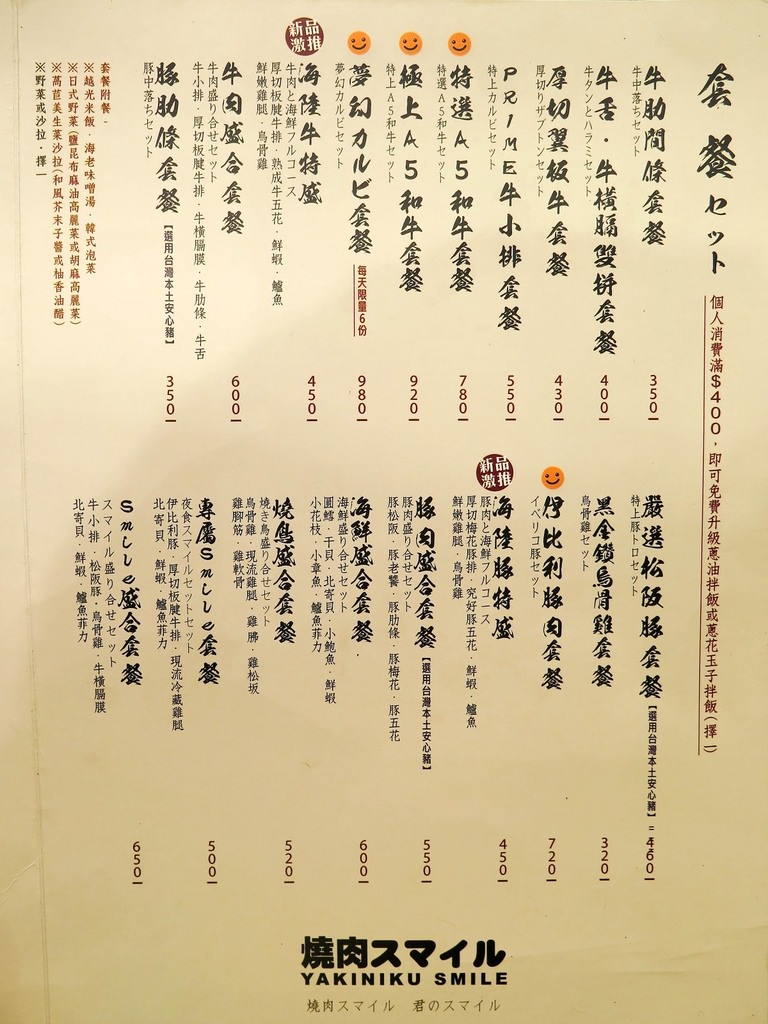 套餐セット
個人消費滿$400，即可免費升級蔥油拌飯或蔥花玉子拌飯(擇一)
牛肋間條套餐 350
牛中落ちセット
牛舌·牛橫膈雙拼套餐 400
牛タンとハラミセット
厚切翼板牛套餐 430
厚切りザブトンセット
PRIME牛小排套餐 550
特上カルビセット
特選A5和牛套餐 780
特選A5和牛セット
極上A5和牛套餐 920
特上A5和牛セット
夢幻カルビ套餐 每天限量6份 980
夢幻カルビセット
新品激推
海陸牛特盛 450
牛肉と海鮮フルコース
厚切板腱牛排·熟成牛五花·鮮蝦·鱸魚
鮮嫩雞腿·烏骨雞
牛肉盛合套餐 600
牛肉盛り合せセット
牛小排·厚切板腱牛排·牛橫膈膜·牛肋條·牛舌
豚肋條套餐【選用台灣本土安心豬】 350
豚中落ちセット
套餐附餐-
※越光米飯·海老味噌湯·韓式泡菜
※日式野菜(鹽昆布麻油高麗菜或胡麻高麗菜)
※萵苣美生菜沙拉(和風芥末子醬或柚香油醋)
※野菜或沙拉·擇一
嚴選松阪豚套餐【選用台灣本土安心豬】 460
特上豚トロセット
黑金鑽烏骨雞套餐 320
烏骨雞セット
伊比利豚肉套餐 720
イベリコ豚セット
新品激推
海陸豚特盛 450
豚肉と海鮮フルコース
厚切梅花豚排·究好豚五花·鮮蝦·鱸魚
鮮嫩雞腿·烏骨雞
豚肉盛合套餐【選用台灣本土安心豬】 550
豚肉盛り合せセット
豚松阪·豚老饕·豚肋條·豚梅花·豚五花
海鮮盛合套餐 600
海鮮盛り合せセット
圓鱈·干貝·北寄貝·小鮑魚·鮮蝦
小花枝·小章魚·鱸魚菲力
燒鳥盛合套餐 520
燒き鳥盛り合せセット
烏骨雞·現流雞腿·雞膆·雞松坂
雞腳筋·雞軟骨
專屬Smile套餐 500
夜食スマイルセットセット
伊比利豚·厚切板腱牛排·現流冷藏雞腿
北寄貝·鮮蝦·鱸魚菲力
Smile盛合套餐 650
スマイル盛り合せセット
牛小排·松阪豚·烏骨雞·牛橫膈膜
北寄貝·鮮蝦·鱸魚菲力
燒肉スマイル
YAKINIKU SMILE
燒肉スマイル 君のスマイル